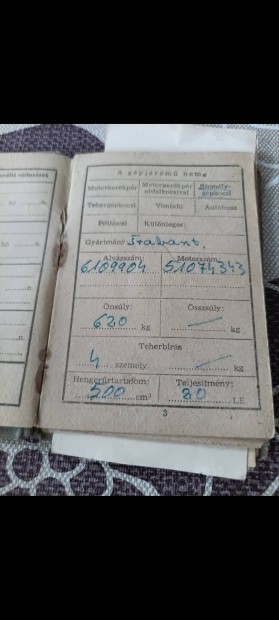 A gépjármű neme
Motorkerékpár Motorkerékpár oldalkocsival Személy-gépkocsi
Tehergépkocsi Vontató Autóbusz
Pótkocsi Különleges:
Gyártmány Trabant.
Alvázszám: Motorszám:
6109904 51074343
Önsúly: Összsúly:
620 kg — kg
Teherbírás
4 személy — kg
Hengerűrtartalom: Teljesítmény:
500 cm³ 20 LE
3